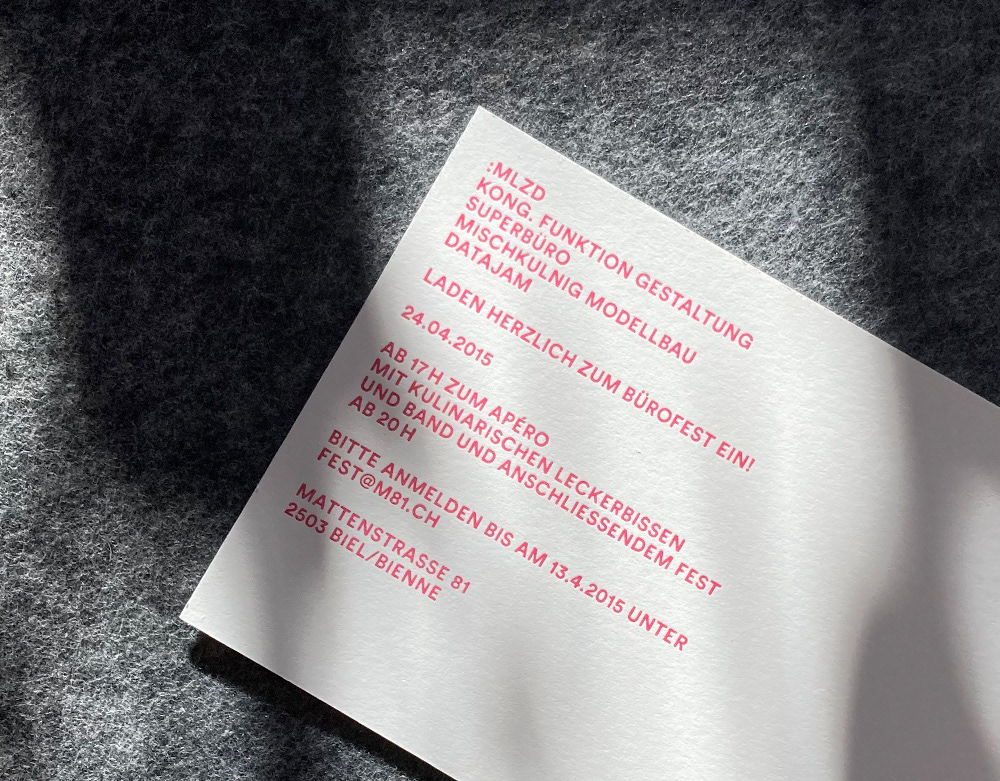 :MLZD
KONG. FUNKTION GESTALTUNG
SUPERBÜRO
MISCHKULNIG MODELLBAU
DATAJAM
LADEN HERZLICH ZUM BÜROFEST EIN!
24.04.2015
AB 17 H ZUM APÉRO
MIT KULINARISCHEN LECKERBISSEN
UND BAND UND ANSCHLIESSENDEM FEST
AB 20 H
BITTE ANMELDEN BIS AM 13.4.2015 UNTER
FEST@M81.CH
MATTENSTRASSE 81
2503 BIEL/BIENNE